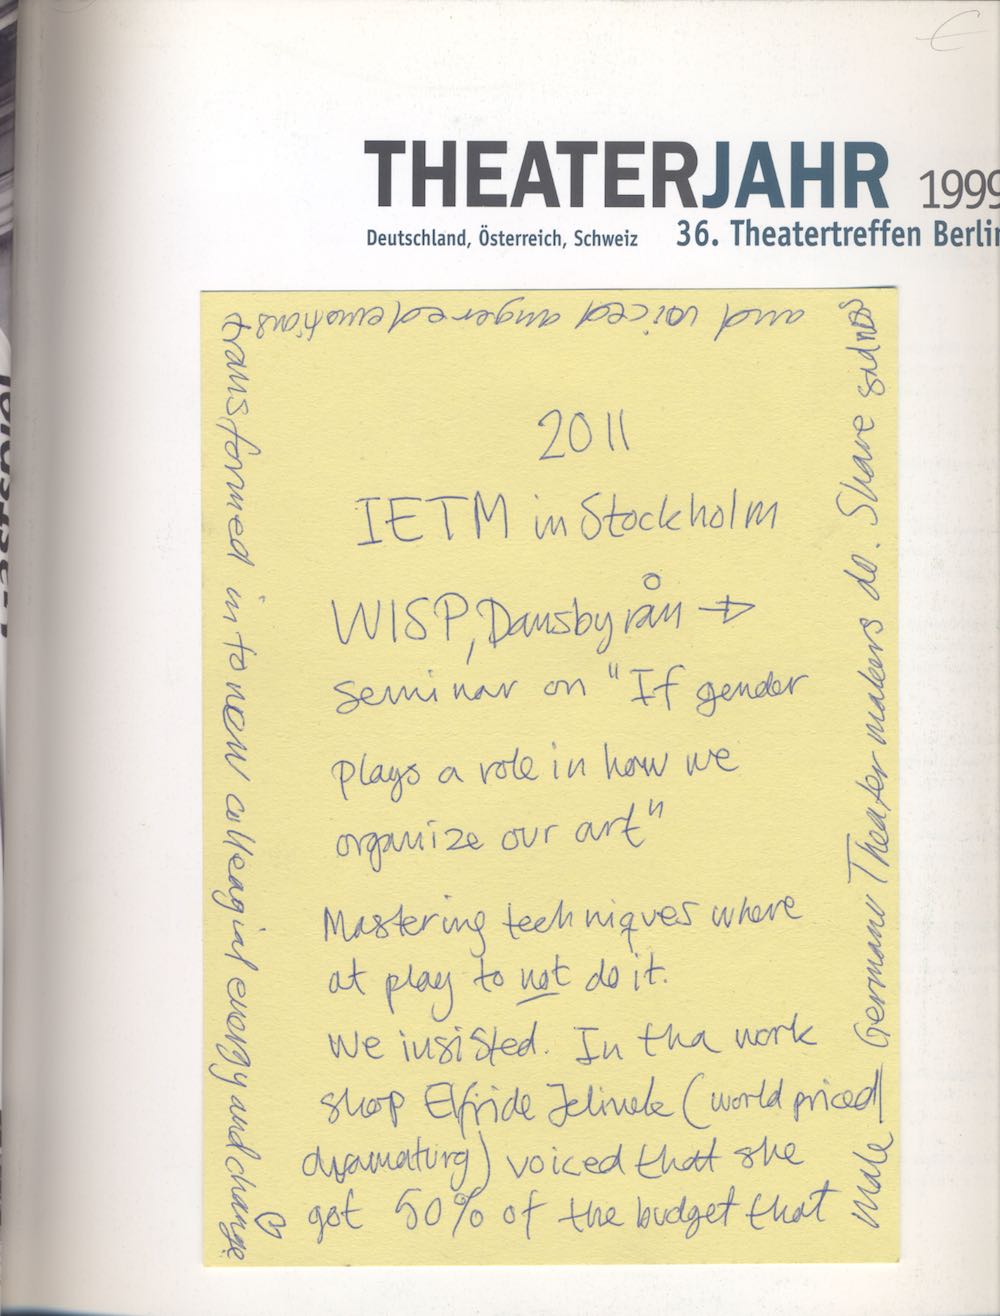 THEATERJAHR 1999
Deutschland, Österreich, Schweiz 36. Theatertreffen Berlin
2011
IETM in Stockholm
WISP, Dansbyrån →
seminar on "If gender
plays a role in how we
organize our art"
Mastering techniques where
at play to not do it.
We insisted. In tha work
shop Elfride Jelinek (world priced
dramaturg) voiced that she
got 50% of the budget that
male German Theater makers do. Share sadness
and voiced angered emotions
transformed in to new colleagial energy and change ♡